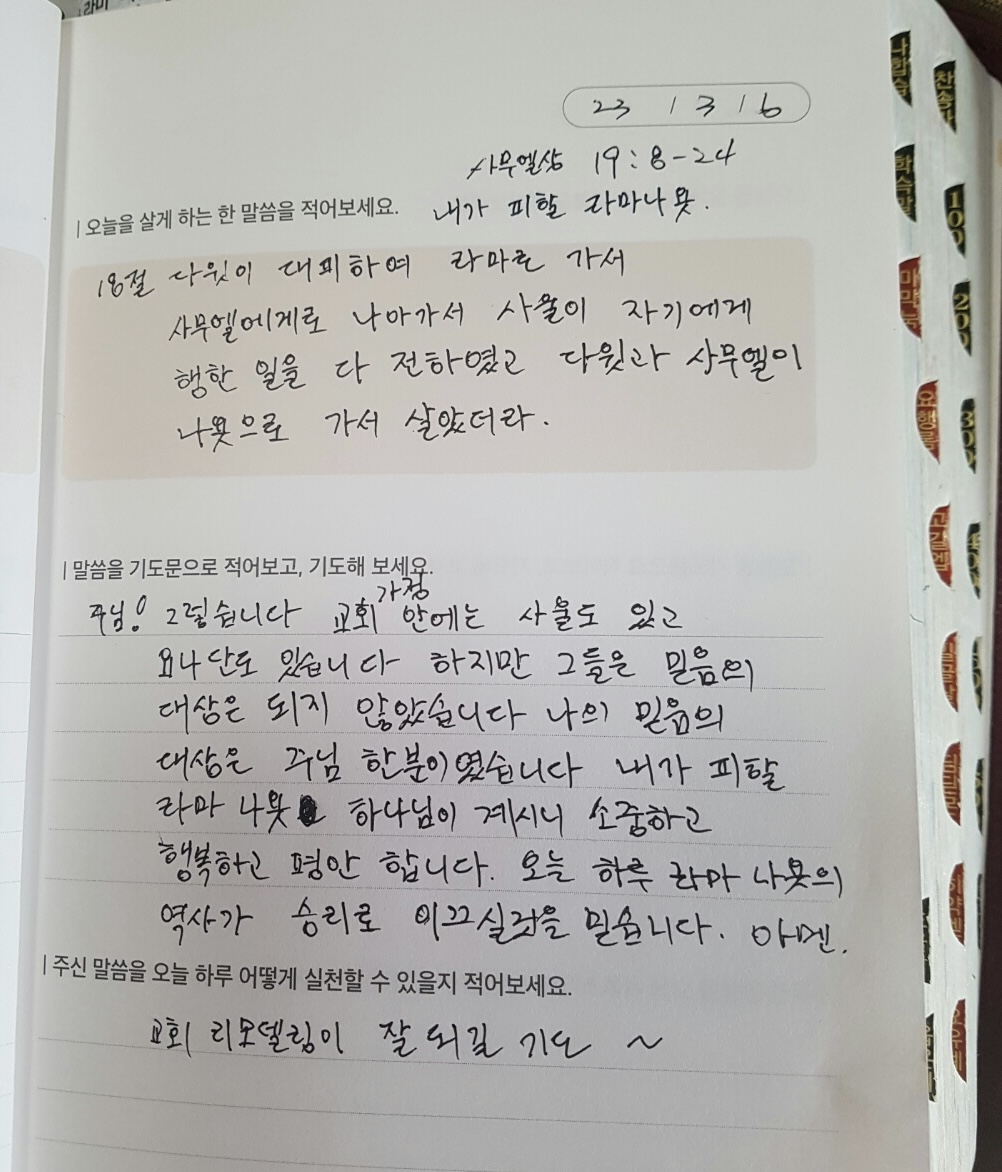 라미
23 / 3 / 6
사무엘상 19:8-24
| 오늘을 살게 하는 한 말씀을 적어보세요.
내가 피할 라마나욧.
18절 다윗이 대피하여 라마로 가서
사무엘에게로 나아가서 사울이 자기에게
행한 일을 다 전하였고 다윗과 사무엘이
나욧으로 가서 살았더라.
| 말씀을 기도문으로 적어보고, 기도해 보세요.
가정
주님! 그렇습니다 교회 안에는 사울도 있고
요나단도 있습니다 하지만 그들은 믿음의
대상은 되지 않았습니다 나의 믿음의
대상은 주님 한분이였습니다 내가 피할
라마 나욧 하나님이 계시니 소중하고
행복하고 평안 합니다. 오늘 하루 라마 나욧의
역사가 승리로 이끄실것을 믿습니다. 아멘.
| 주신 말씀을 오늘 하루 어떻게 실천할 수 있을지 적어보세요.
교회 리모델링이 잘 되길 기도 ~
나합습
학슥말
마막눅
요행롬
고갈엡
히약벧
요유계
찬송가
100
200
300